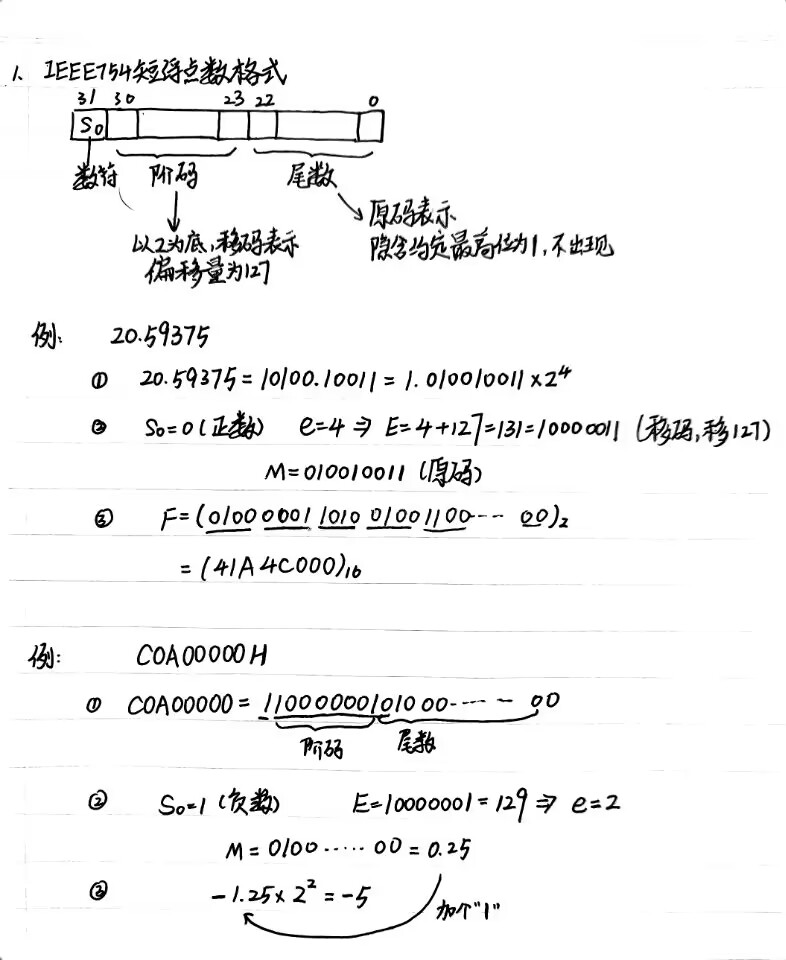 1、IEEE754短浮点数格式
31 30 23 22 0
S₀
数符 阶码 尾数
以2为底,移码表示
偏移量为127
原码表示
隐含约定最高位为1,不出现
例: 20.59375
① 20.59375=10100.10011=1.010010011×2⁴
② S₀=0(正数) e=4⇒E=4+127=131=10000011 (移码,移127)
M=010010011 (原码)
③ F=(01000001 1010 01001100---- 00)₂
=(41A4C000)₁₆
例: C0A00000H
① C0A00000=1100000010100 0----- 00
阶码 尾数
② S₀=1(负数) E=10000001=129⇒e=2
M=0100 ····· 00=0.25
③ -1.25×2²=-5
加个"1"